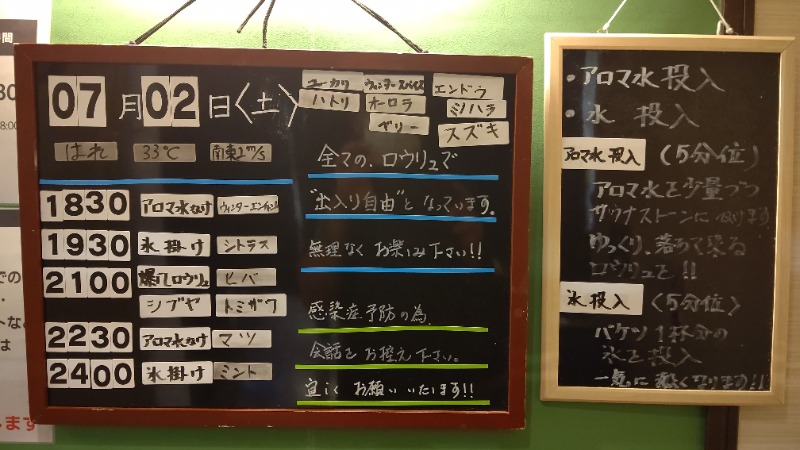 07月02日〈土〉
はれ 33℃ 南東2m/s
ユーカリ ウィンタースパイス エンドウ
ハトリ オーロラ ミハラ
ベリー スズキ
1830 アロマ水かけ
1930 氷掛け シトラス
2100 爆風ロウリュ ヒバ
シブヤ トミザワ
2230 アロマ水かけ マツ
2400 氷掛け ミント
全ての、ロウリュで
"出入り自由"となっています。
無理なく お楽しみ下さい!!
感染症予防の為、
会話をお控え下さい。
宜しく お願いいたします!!
・アロマ水投入
・氷 投入
アロマ水投入 (5分位)
アロマ水を少量づつ
サウナストーンに
ゆっくり、落ちて来る
ロウリュを!!
氷投入 〈5分位〉
バケツ1杯分の
氷を投入
一気に熱くなります!!
30
8:00
での
は
します